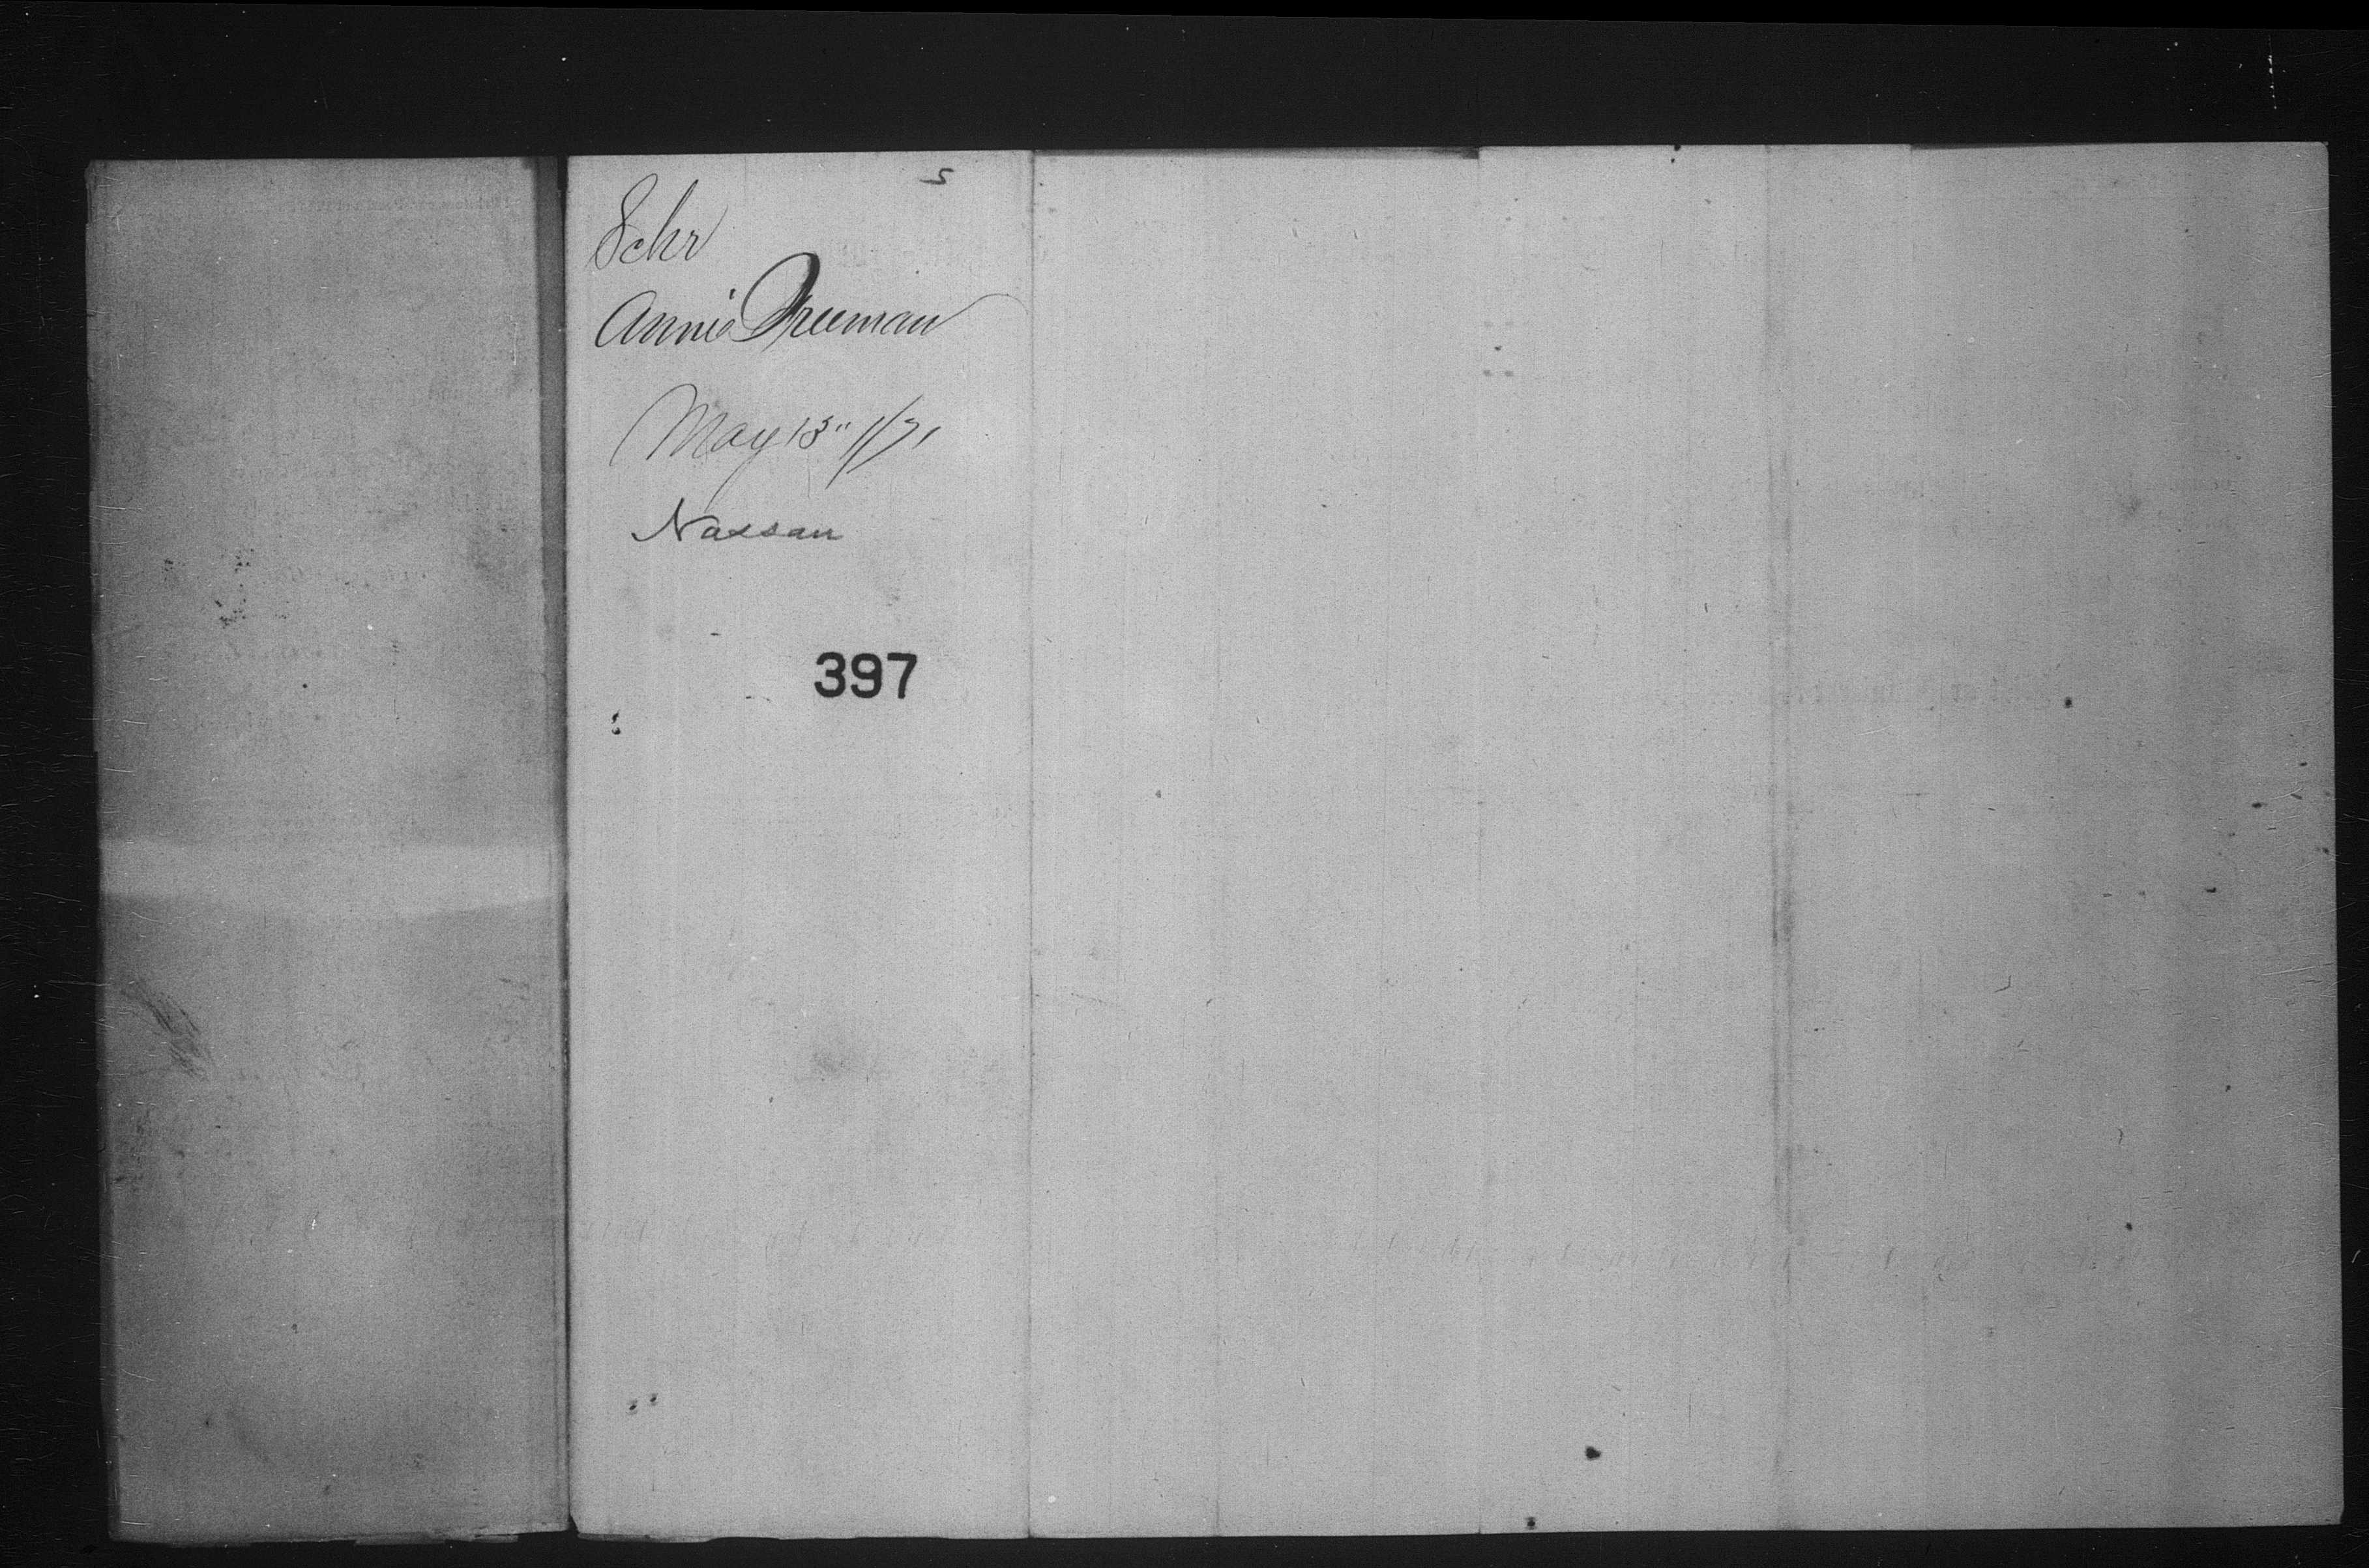 5
Schr
Annie Freeman
May 13" 1/71
Nassau
397